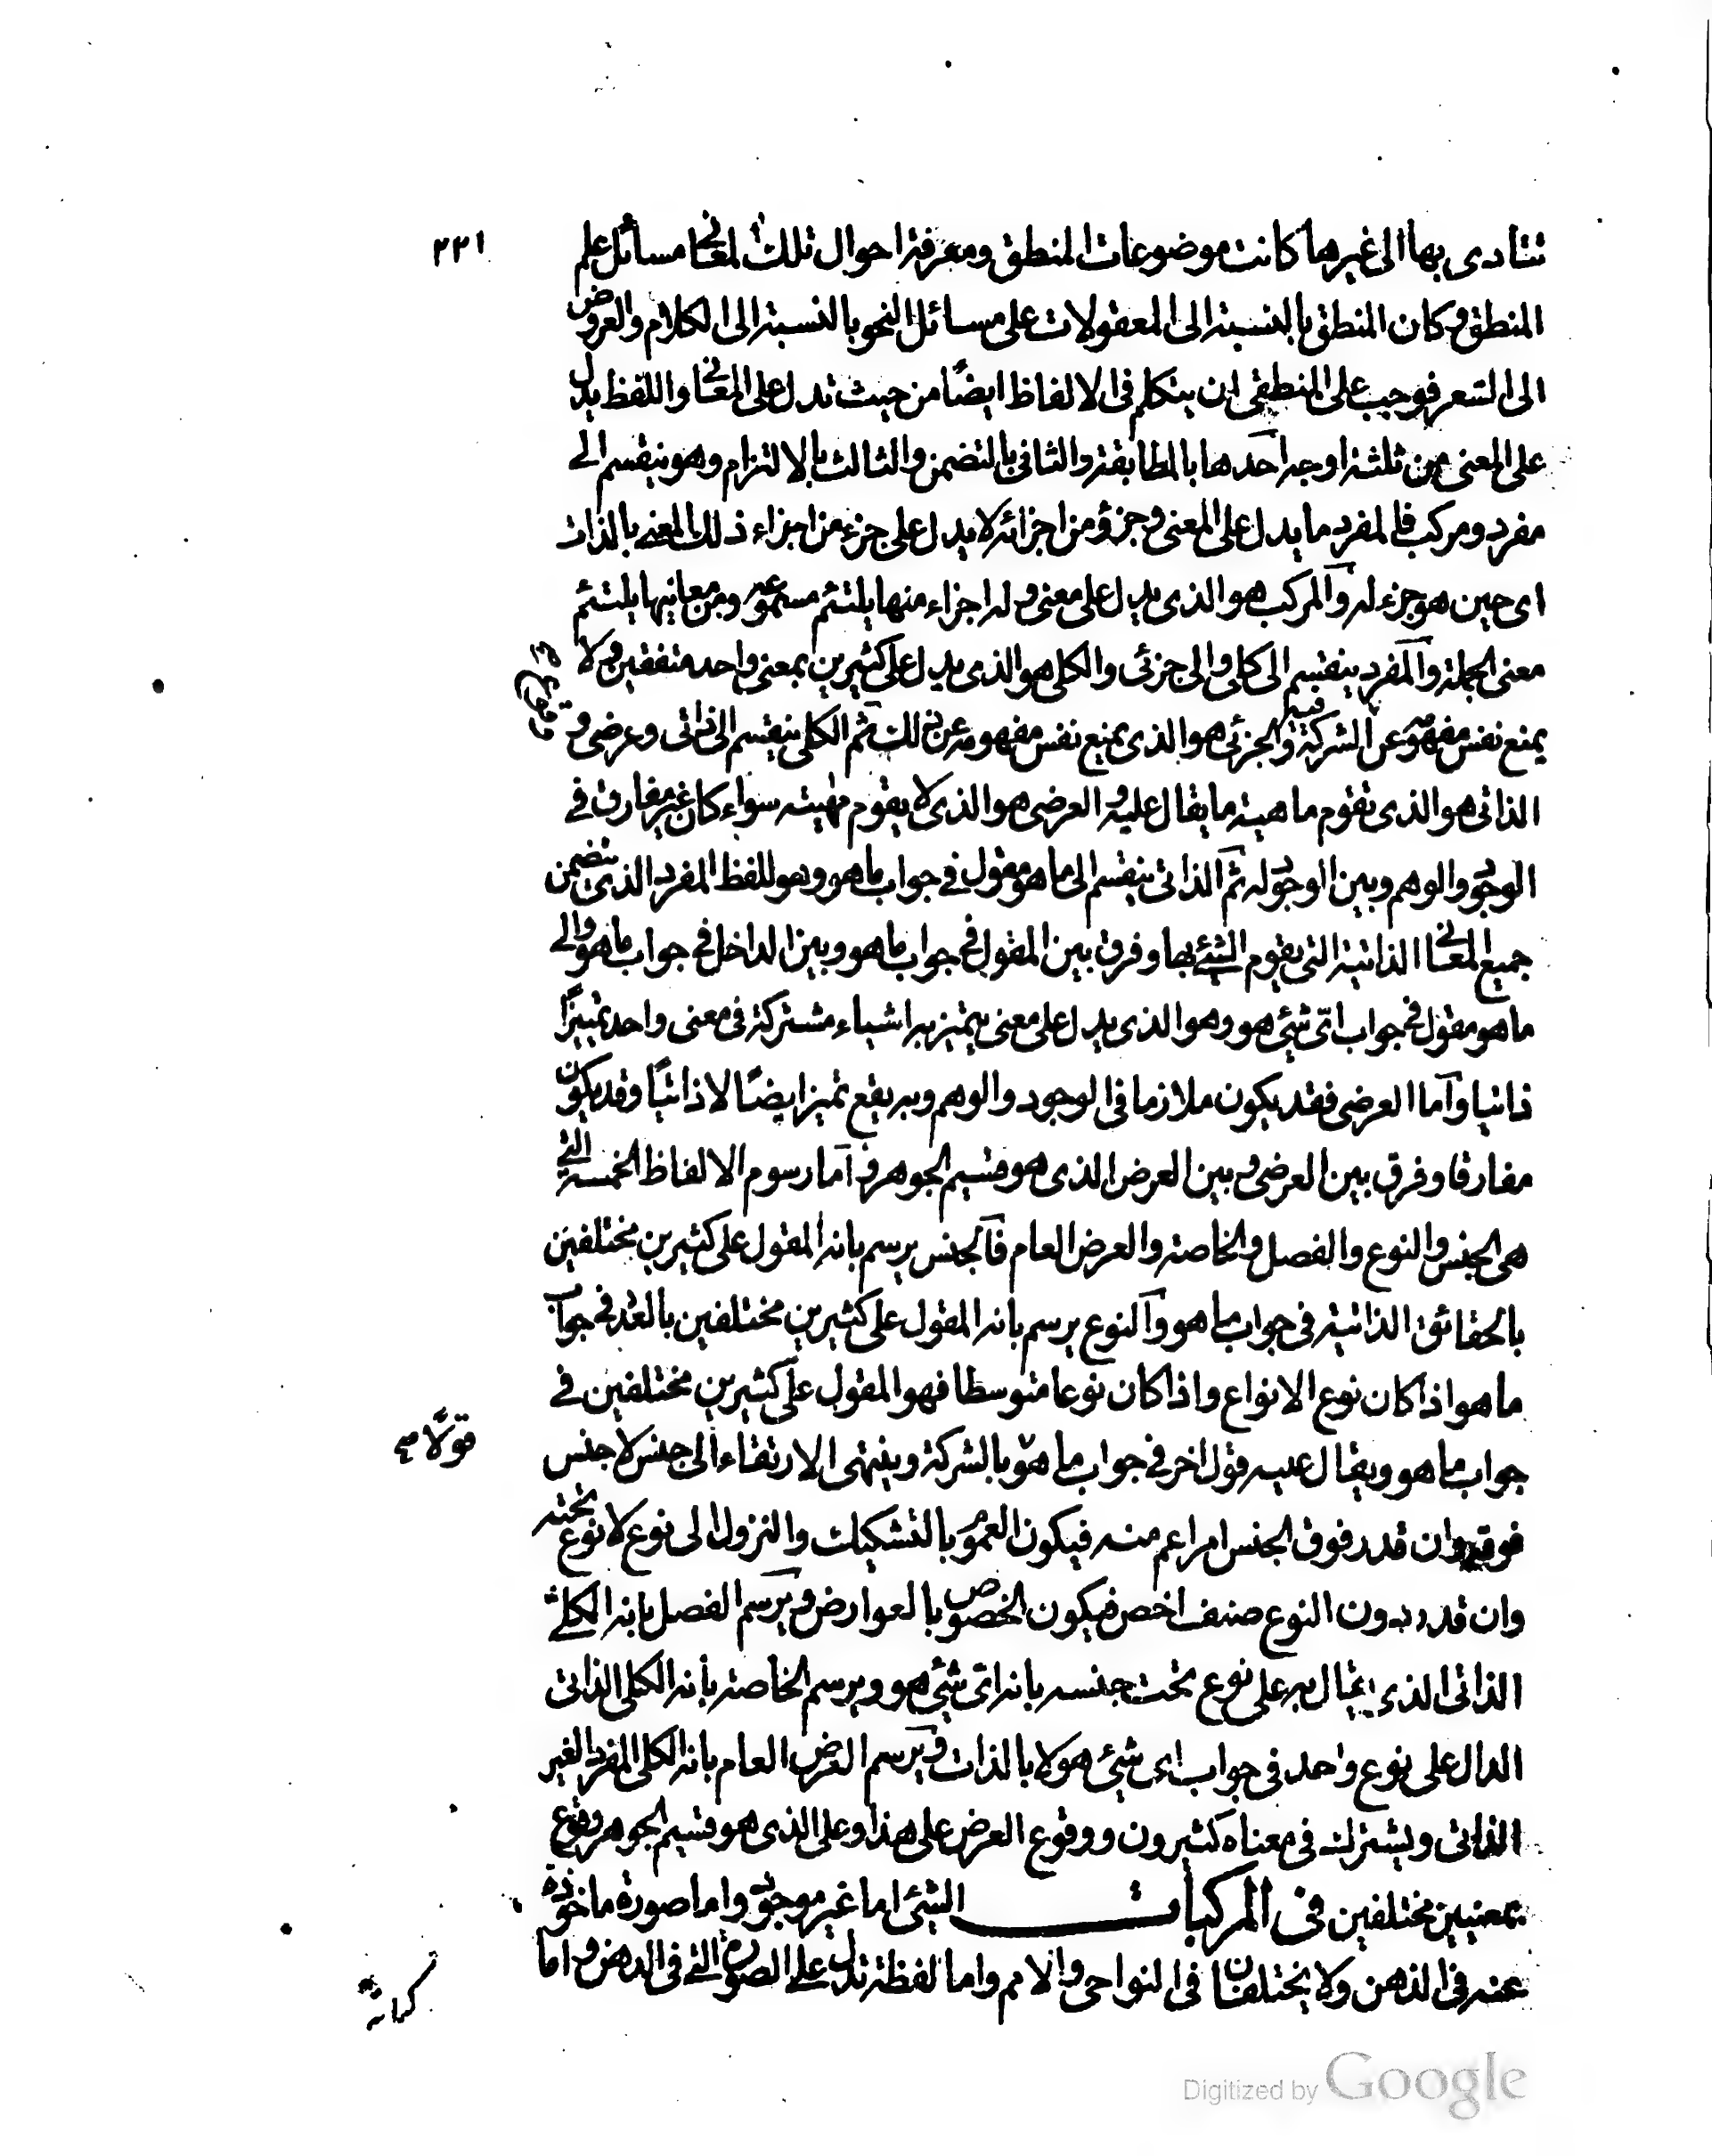 ٢٢١
تتأدى بها الى غيرها كانت موضوعات المنطق ومعرفة احوال تلك المعانى مسائل علم
المنطق وكان المنطق بالنسبة الى المعقولات على مسائل النحو بالنسبة الى الكلام والعروض
الى الشعر فوجب على المنطقى ان يتكلم فى الالفاظ ايضًا من حيث تدل على المعانى واللفظ يدل
على المعنى من ثلثة اوجه احدها بالمطابقة والثانى بالتضمن والثالث بالالتزام وهو ينقسم الى
مفرد ومركب فالمفرد ما يدل على المعنى وجزؤ من اجزائه لا يدل على جزء من اجزاء ذلك المعنى بالذات
اى حين هو جزء له والمركب هو الذى يدل على معنى وله اجزاء منها يلتئم مسموعه ومن معانيها يلتئم
معنى الجملة والمفرد ينقسم الى كلى والى جزئى والكلى هو الذى يدل على كثيرين بمعنى واحد متفقين ولا
يمنع نفس مفهومه عن الشركة فيه والجزئى هو الذى يمنع نفس مفهومه عن ذلك ثم الكلى ينقسم الى ذاتى وعرضى و
الذاتى هو الذى يقوم ماهية ما يقال عليه والعرضى هو الذى لا يقوم مهيته سواء كان غير مفارق فى
الوجود والوهم وبين الوجود له ثم الذاتى ينقسم الى ما هو مقول فى جواب ما هو وهو اللفظ المفرد الذى يتضمن
جميع المعانى الذاتية التى يقوم الشئ بها وفرق بين المقول فى جواب ما هو وبين الداخل فى جواب ما هو والى
ما هو مقول فى جواب اى شئ هو وهو الذى يدل على معنى يتميز به اشياء مشتركة فى معنى واحد تميزًا
ذاتيا واما العرضى فقد يكون ملازما فى الوجود والوهم وبه يقع تميز ايضًا لا ذاتيًا وقد يكون
مفارقا وفرق بين العرضى وبين العرض الذى هو قسيم الجوهر واما رسوم الالفاظ الخمسة التى
هى الجنس والنوع والفصل والخاصة والعرض العام فالجنس يرسم بانه المقول على كثيرين مختلفين
بالحقائق الذاتية فى جواب ما هو والنوع يرسم بانه المقول على كثيرين مختلفين بالعدد فى جواب
ما هو اذا كان نوع الانواع واذا كان نوعا متوسطا فهو المقول على كثيرين مختلفين فى
جواب ما هو ويقال عليه قول اخر فى جواب ما هو بالشركة وينتهى الارتقاء الى جنس لا جنس
قولًا صح
فوقه وان قدر فوق الجنس امر اعم منه فيكون العموم بالتشكيك والنزول الى نوع لا نوع تحته
وان قدر دون النوع صنف اخص فيكون الخصوص بالعوارض ويرسم الفصل بانه الكلى
الذاتى الذى يقال به على نوع تحت جنسه بانه اى شئ هو ويرسم الخاصة بانه الكلى الذاتى
الدال على نوع واحد فى جواب اى شئ هو لا بالذات ويرسم العرض العام بانه الكلى المفرد الغير
الذاتى ويشترك فى معناه كثيرون ووقوع العرض على هذا وعلى الذى هو قسيم الجوهر وقوع
بمعنيين مختلفين فى المركبات الشئ اما غير موجود واما صورة ماخوذة
عنه فى الذهن ولا يختلفان فى النواحى والامم واما لفظة تدل على الصورة التى فى الذهن واما
كتابة
Digitized by Google